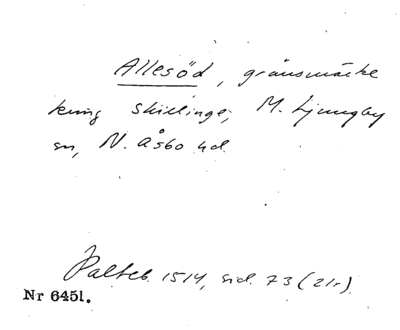 Allesöd, gränsmärke
kring Skillinge, M. Ljungby
sn, N. Åsbo hd.
Palteb. 1514, sid. 73 (21r).
Nr 6451.